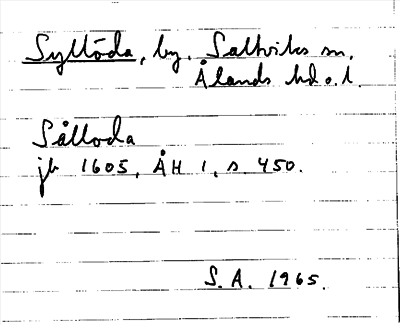 Syllöda, by. Saltviks sn.
Ålands hd o. l.
Sålloda
jb 1605, ÅH 1, s 450.
S. A. 1965.